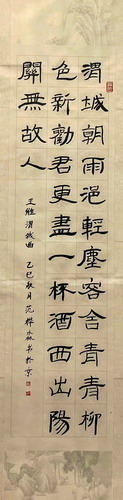 渭城朝雨浥輕塵客舍青青柳
色新勸君更盡一杯酒西出陽
關無故人
王維渭城曲 乙巳秋月范
書於京